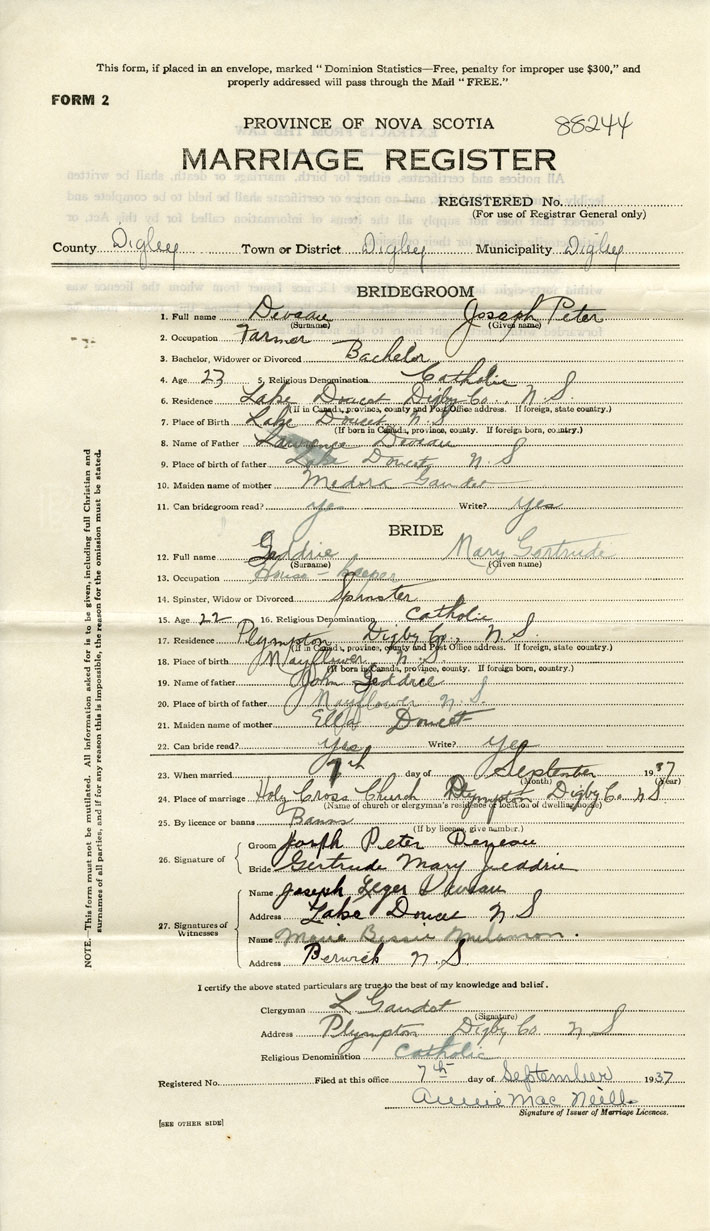 This form, if placed in an envelope, marked "Dominion Statistics—Free, penalty for improper use $300," and
properly addressed will pass through the Mail "FREE."
FORM 2
PROVINCE OF NOVA SCOTIA 88244
MARRIAGE REGISTER
REGISTERED No.
(For use of Registrar General only)
County Digby Town or District Digby Municipality Digby
BRIDEGROOM
1. Full name Deveau Joseph Peter
(Surname) (Given name)
2. Occupation Farmer
3. Bachelor, Widower or Divorced Bachelor
4. Age 23 5. Religious Denomination Catholic
6. Residence Lake Doucet Digby Co., N.S.
(If in Canada, province, county and Post Office address. If foreign, state country.)
7. Place of Birth Lake Doucet N.S
(If born in Canada, province, county. If foreign born, country.)
8. Name of Father Lawrence Deveau
9. Place of birth of father Lake Doucet N S
10. Maiden name of mother Medora Gaudet
11. Can bridegroom read? yes Write? yes
BRIDE
12. Full name Geddrie Mary Gertrude
(Surname) (Given name)
13. Occupation House-keeper
14. Spinster, Widow or Divorced Spinster
15. Age 22 16. Religious Denomination Catholic
17. Residence Plympton Digby Co., N.S.
(If in Canada, province, county and Post Office address. If foreign, state country.)
18. Place of birth Mayflower N.S.
(If born in Canada, province, county. If foreign born, country.)
19. Name of father John Geddrie
20. Place of birth of father Mayflower N.S.
21. Maiden name of mother Ella Doucet
22. Can bride read? yes Write? yes
23. When married 7th day of September 1937
(Month) (Year)
24. Place of marriage Holy Cross Church Plympton Digby Co N S
(Name of church or clergyman's residence or location of dwelling house)
25. By licence or banns Banns
(If by licence, give number.)
26. Signature of
Groom Joseph Peter Deveau
Bride Gertrude Mary Jeddrie
27. Signatures of Witnesses
Name Joseph Leger Deveau
Address Lake Doucet N S
Name Marie Bessie Melanson.
Address Berwick N.S
I certify the above stated particulars are true to the best of my knowledge and belief.
Clergyman L Gaudet
(Signature)
Address Plympton Digby Co N S
Religious Denomination Catholic
Registered No. Filed at this office 7th day of September 1937
Annie Mac Neill
Signature of Issuer of Marriage Licences.
[SEE OTHER SIDE]
NOTE.—This form must not be mutilated. All information asked for is to be given, including full Christian and
surnames of all parties, and if for any reason this is impossible, the reason for the omission must be stated.